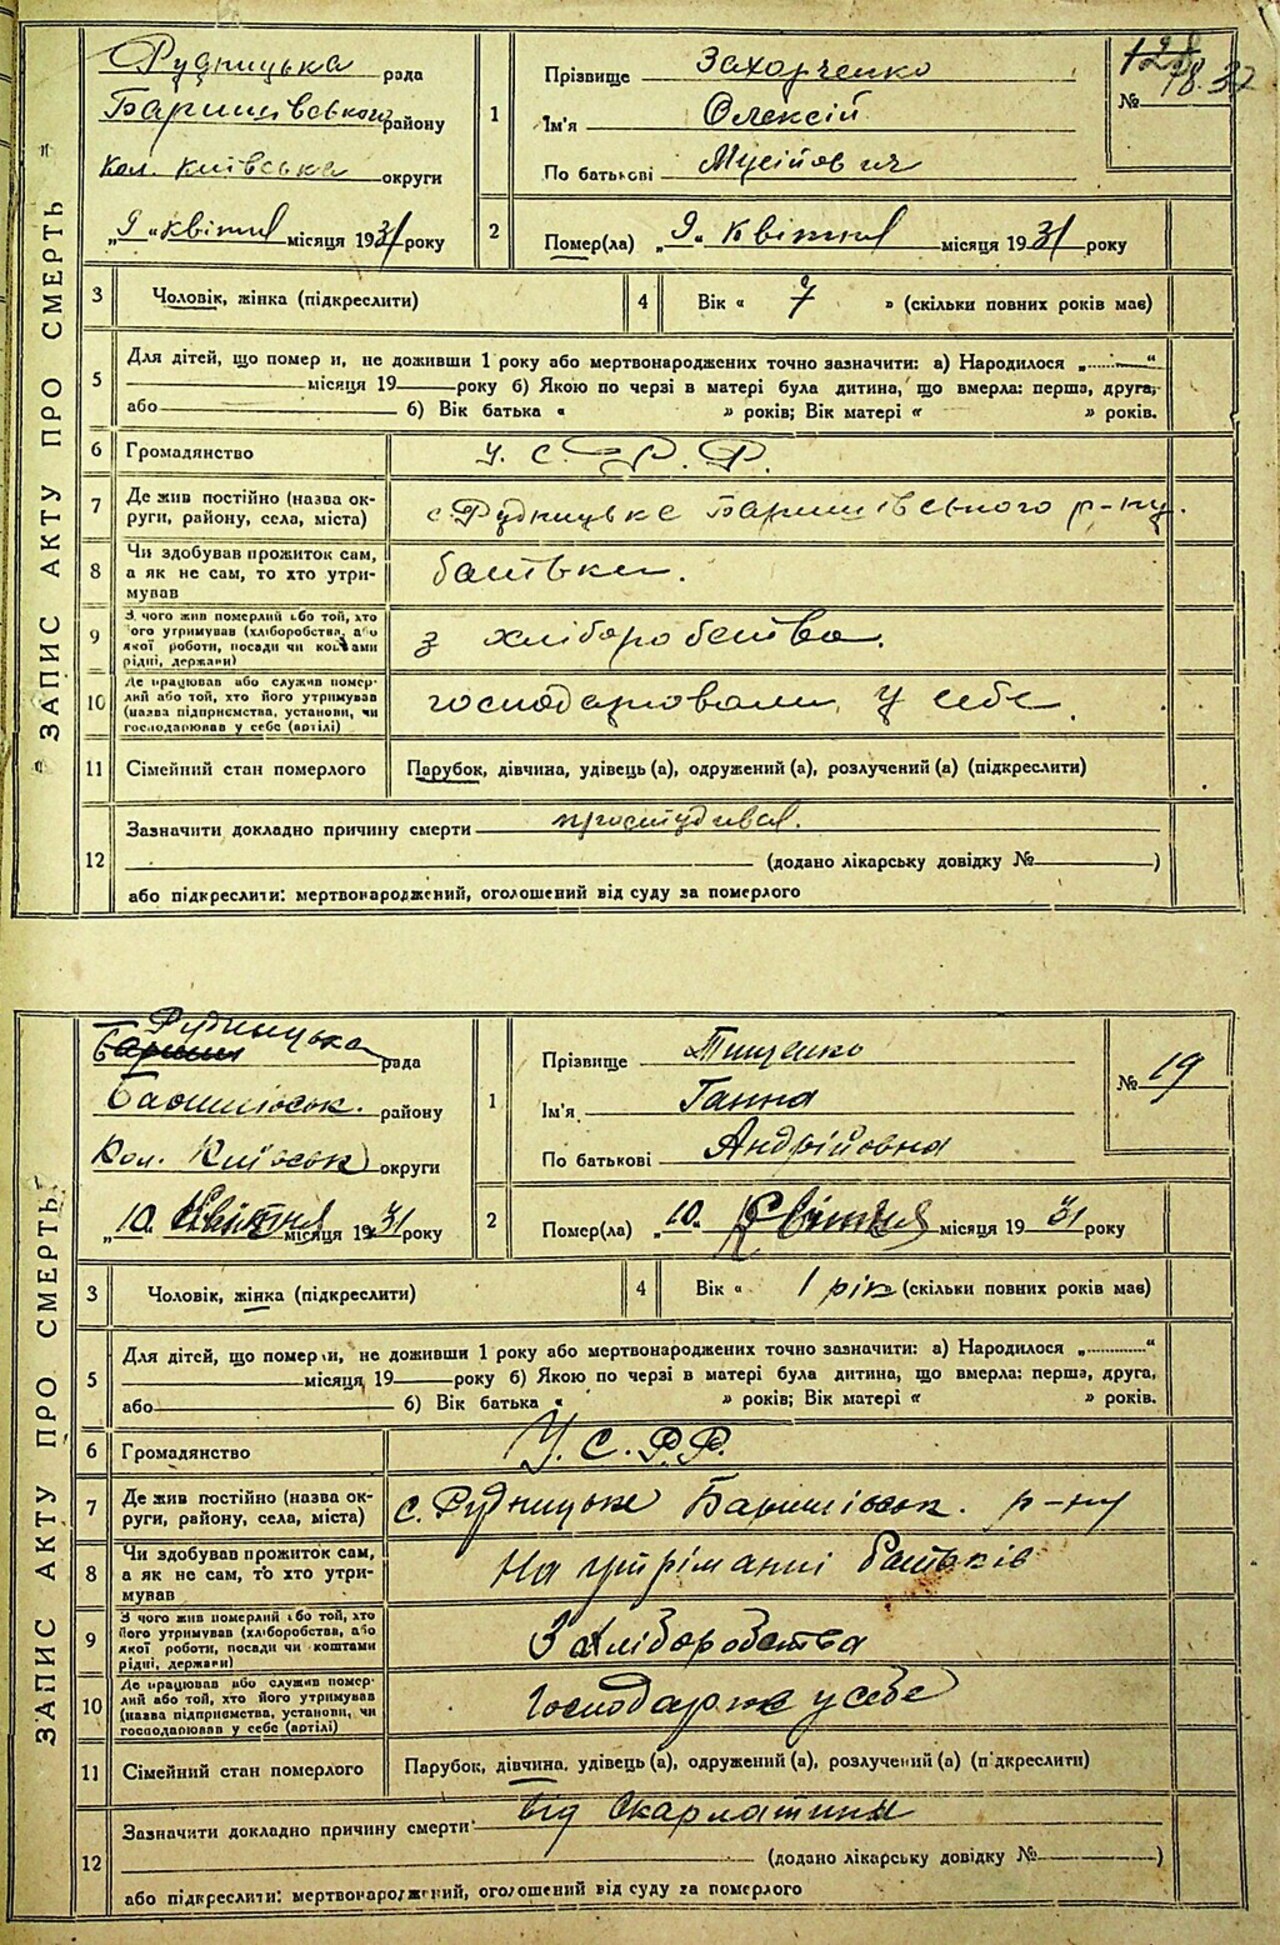 " ЗАПИС АКТУ ПРО СМЕРТЬ "
Рудницька рада
Баришівського району
Кол. Київська округи
„9“ квітня місяця 1931 року
1
Прізвище Захорченко
Ім'я Олексій
По батькові Мусійович
№ 18.
2
Помер(ла) „9“ Квітня місяця 1931 року
3 Чоловік, жінка (підкреслити)
4 Вік « 7 » (скільки повних років має)
5
Для дітей, що померли, не доживши 1 року або мертвонароджених точно зазначити: а) Народилося „ “
місяця 19 року б) Якою по черзі в матері була дитина, що вмерла: перша, друга,
або б) Вік батька « » років; Вік матері « » років.
6 Громадянство У. С. Р. Р.
7
Де жив постійно (назва ок-
руги, району, села, міста)
с. Рудницьке Баришівського р-ну.
8
Чи здобував прожиток сам,
а як не сам, то хто утри-
мував
батьки.
9
З чого жив померлий або той, хто
його утримував (хліборобства, або
якої роботи, посади чи коштами
рідні, держави)
з хліборобства.
10
Де працював або служив помер-
лий або той, хто його утримував
(назва підприємства, установи, чи
господарював у себе (артілі)
господарювали у себе.
11 Сімейний стан померлого Парубок, дівчина, удівець (а), одружений (а), розлучений (а) (підкреслити)
12
Зазначити докладно причину смерти
(додано лікарську довідку № )
або підкреслити: мертвонароджений, оголошений від суду за померлого
ЗАПИС АКТУ ПРО СМЕРТЬ
Рудницька рада
Баришівськ. району
Кол. Київськ округи
„10. Квітня місяця 1931 року
1
Прізвище Тищенко
Ім'я Ганна
По батькові Андрійовна
№ 19
2
Помер(ла) „10“ Квітня місяця 1931 року
3 Чоловік, жінка (підкреслити)
4 Вік « 1 рік (скільки повних років має)
5
Для дітей, що померли, не доживши 1 року або мертвонароджених точно зазначити: а) Народилося „ “
місяця 19 року б) Якою по черзі в матері була дитина, що вмерла: перша, друга,
або б) Вік батька « » років; Вік матері « » років.
6 Громадянство У. С. Р. Р.
7
Де жив постійно (назва ок-
руги, району, села, міста)
с. Рудницьке Баришівськ. р-ну
8
Чи здобував прожиток сам,
а як не сам, то хто утри-
мував
На утріманні батьків
9
З чого жив померлий або той, хто
його утримував (хліборобства, або
якої роботи, посади чи коштами
рідні, держави)
З хліборобства
10
Де працював або служив помер-
лий або той, хто його утримував
(назва підприємства, установи, чи
господарював у себе (артілі)
Господарює у себе
11 Сімейний стан померлого Парубок, дівчина, удівець (а), одружений (а), розлучений (а) (підкреслити)
12
Зазначити докладно причину смерти від Скарлатини
(додано лікарську довідку № )
або підкреслити: мертвонароджений, оголошений від суду за померлого